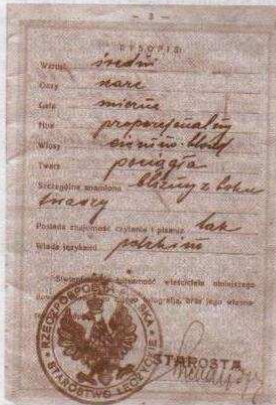 — 3 —
RYSOPIS
Wzrost średni
Oczy szare
Usta mierne
Nos proporcjonalny
Włosy ciemno-blond
Twarz pociągła
Szczególne znamiona blizny z boku
twarzy
Posiada znajomość czytania i pisania tak
Włada językiem polskim
Stwierdzam tożsamość właściciela niniejszego
fotografją, oraz jego własno
RZECZPOSPOLITA POLSKA
STAROSTWO ŁĘCZYCKIE
STAROSTA